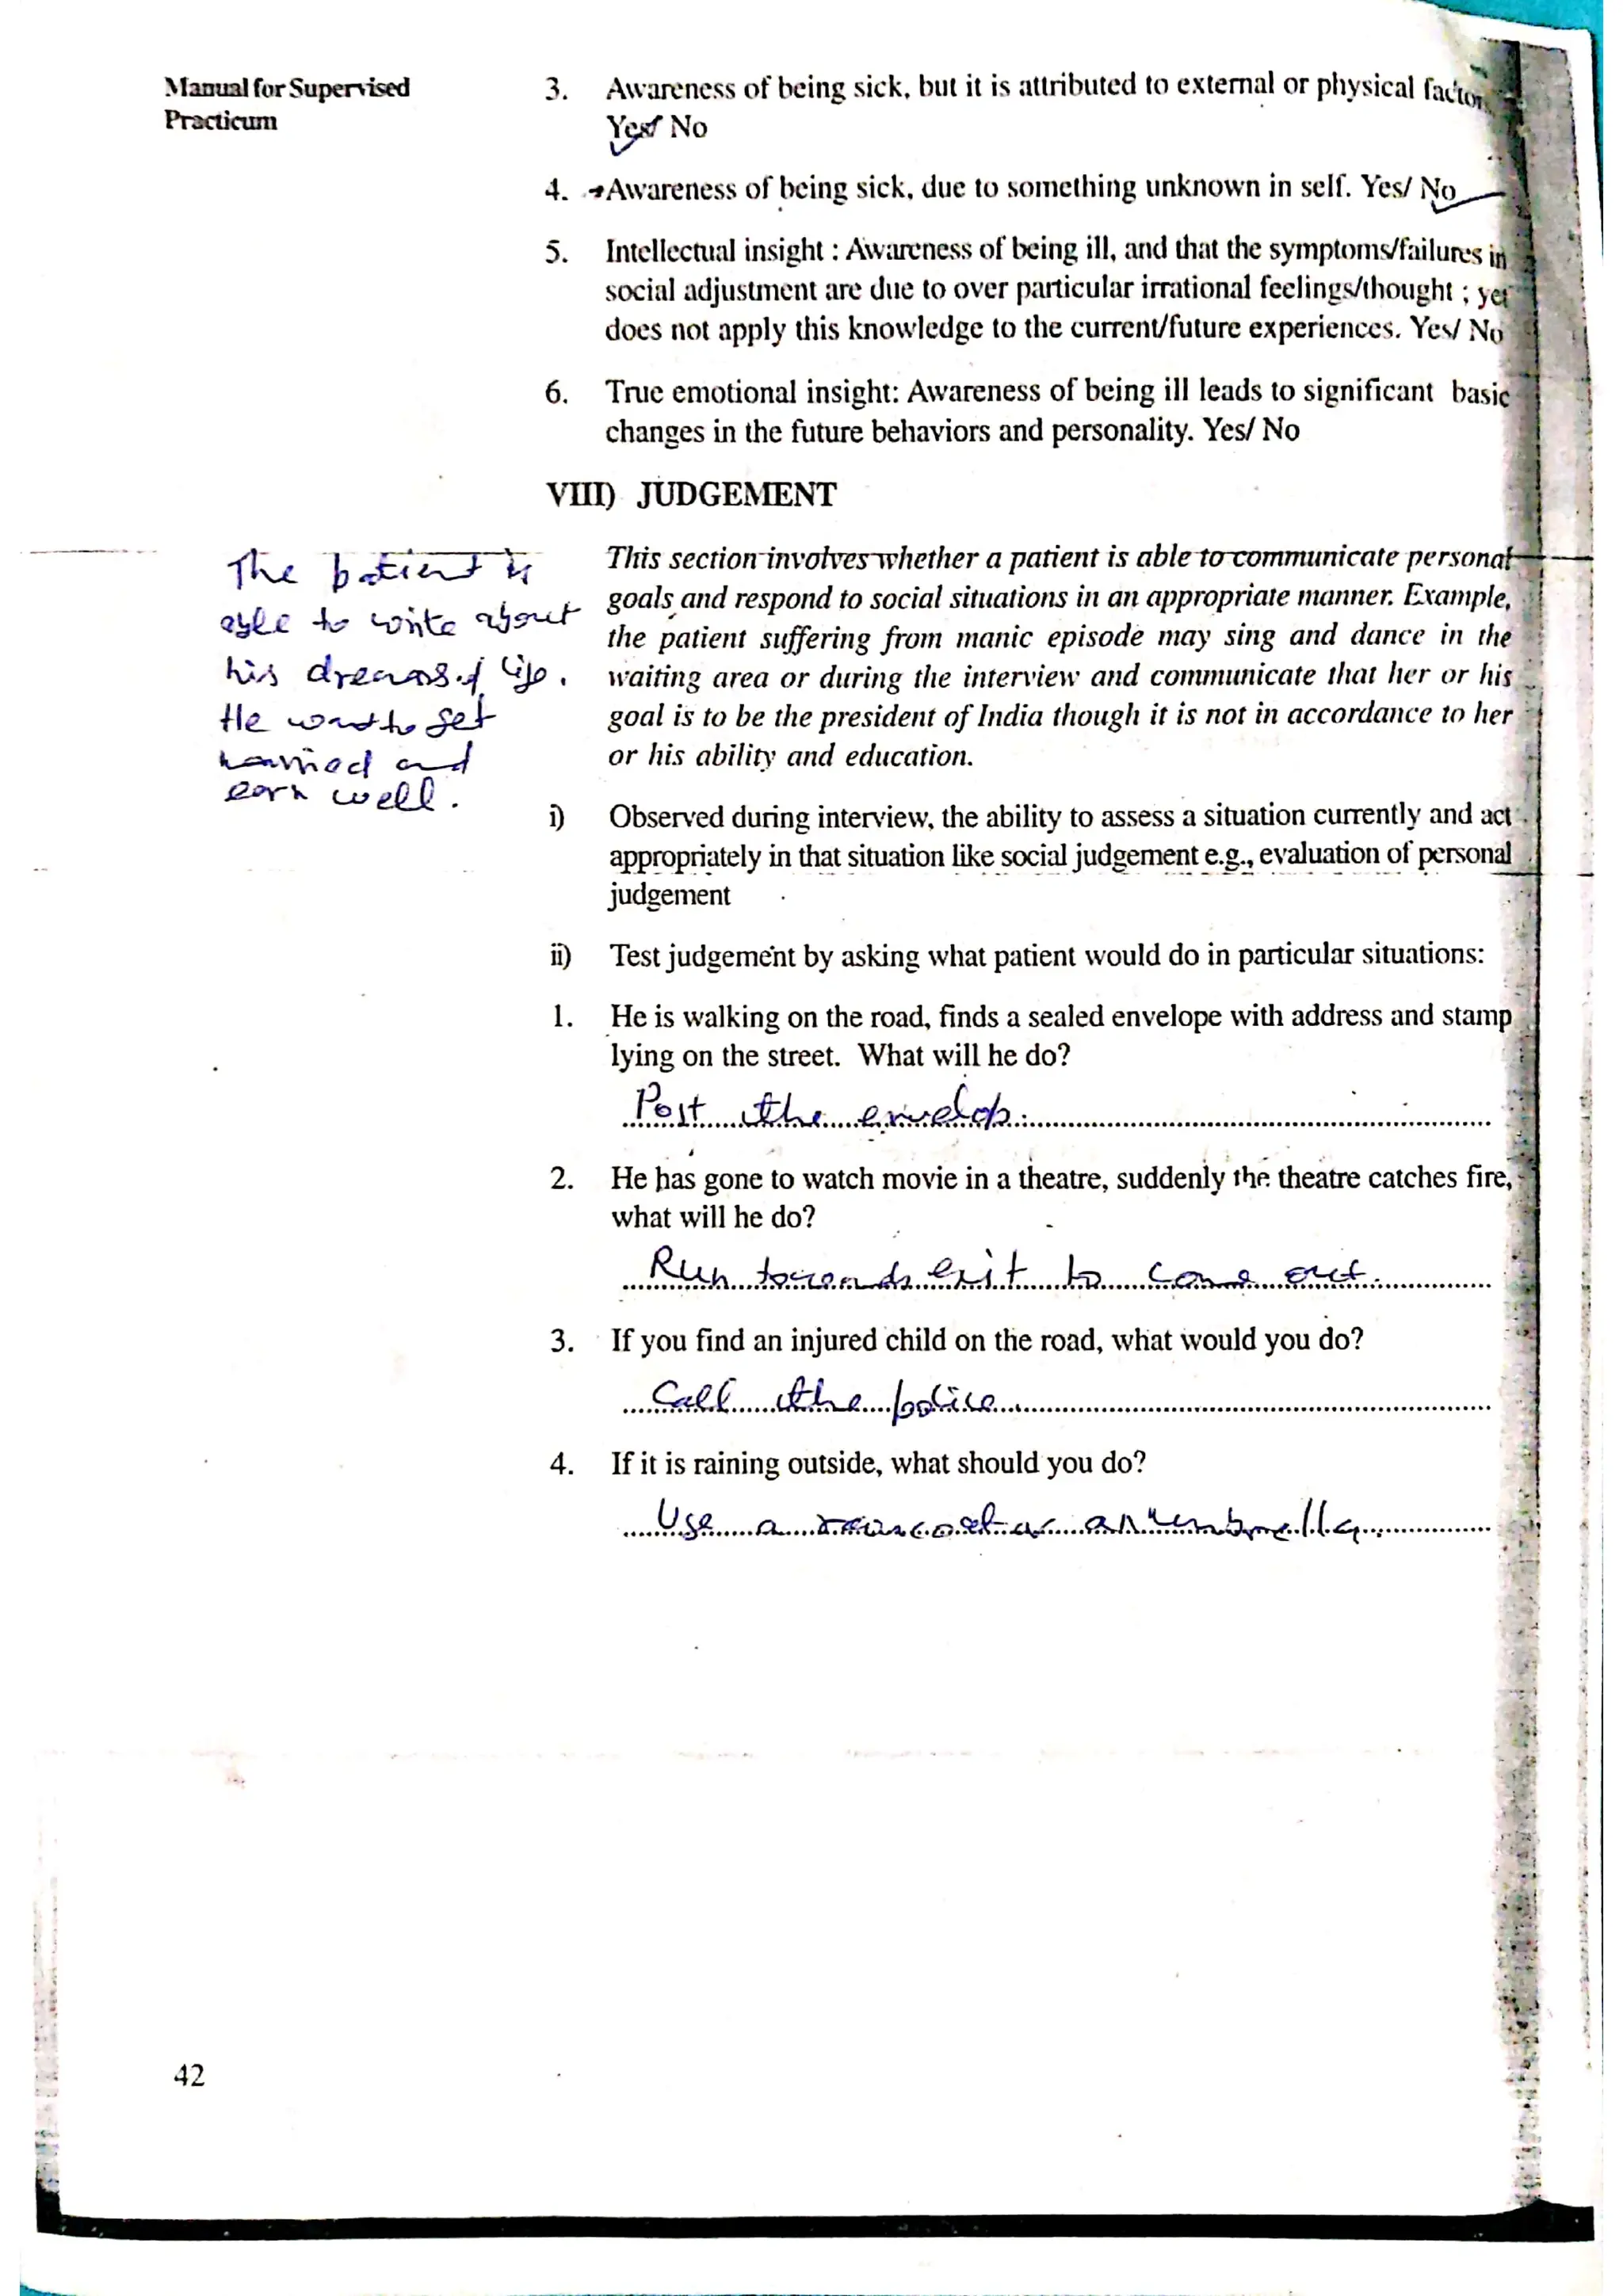 Manual for Supervised
Practicum
3. Awareness of being sick, but it is attributed to external or physical factor
Yes/ No
4. Awareness of being sick, due to something unknown in self. Yes/ No
5. Intellectual insight : Awareness of being ill, and that the symptoms/failures in
social adjustment are due to over particular irrational feelings/thought ; yet
does not apply this knowledge to the current/future experiences. Yes/ No
6. True emotional insight: Awareness of being ill leads to significant basic
changes in the future behaviors and personality. Yes/ No
VIII) JUDGEMENT
The patient is
able to write about
his dreams of life.
He want to get
married and
earn well.
This section involves whether a patient is able to communicate personal
goals and respond to social situations in an appropriate manner. Example,
the patient suffering from manic episode may sing and dance in the
waiting area or during the interview and communicate that her or his
goal is to be the president of India though it is not in accordance to her
or his ability and education.
i) Observed during interview, the ability to assess a situation currently and act
appropriately in that situation like social judgement e.g., evaluation of personal
judgement
ii) Test judgement by asking what patient would do in particular situations:
1. He is walking on the road, finds a sealed envelope with address and stamp
lying on the street. What will he do?
Post the envelop.
2. He has gone to watch movie in a theatre, suddenly the theatre catches fire,
what will he do?
Run towards exit to come out.
3. If you find an injured child on the road, what would you do?
Call the police.
4. If it is raining outside, what should you do?
Use a raincoat or an umbrella.
42